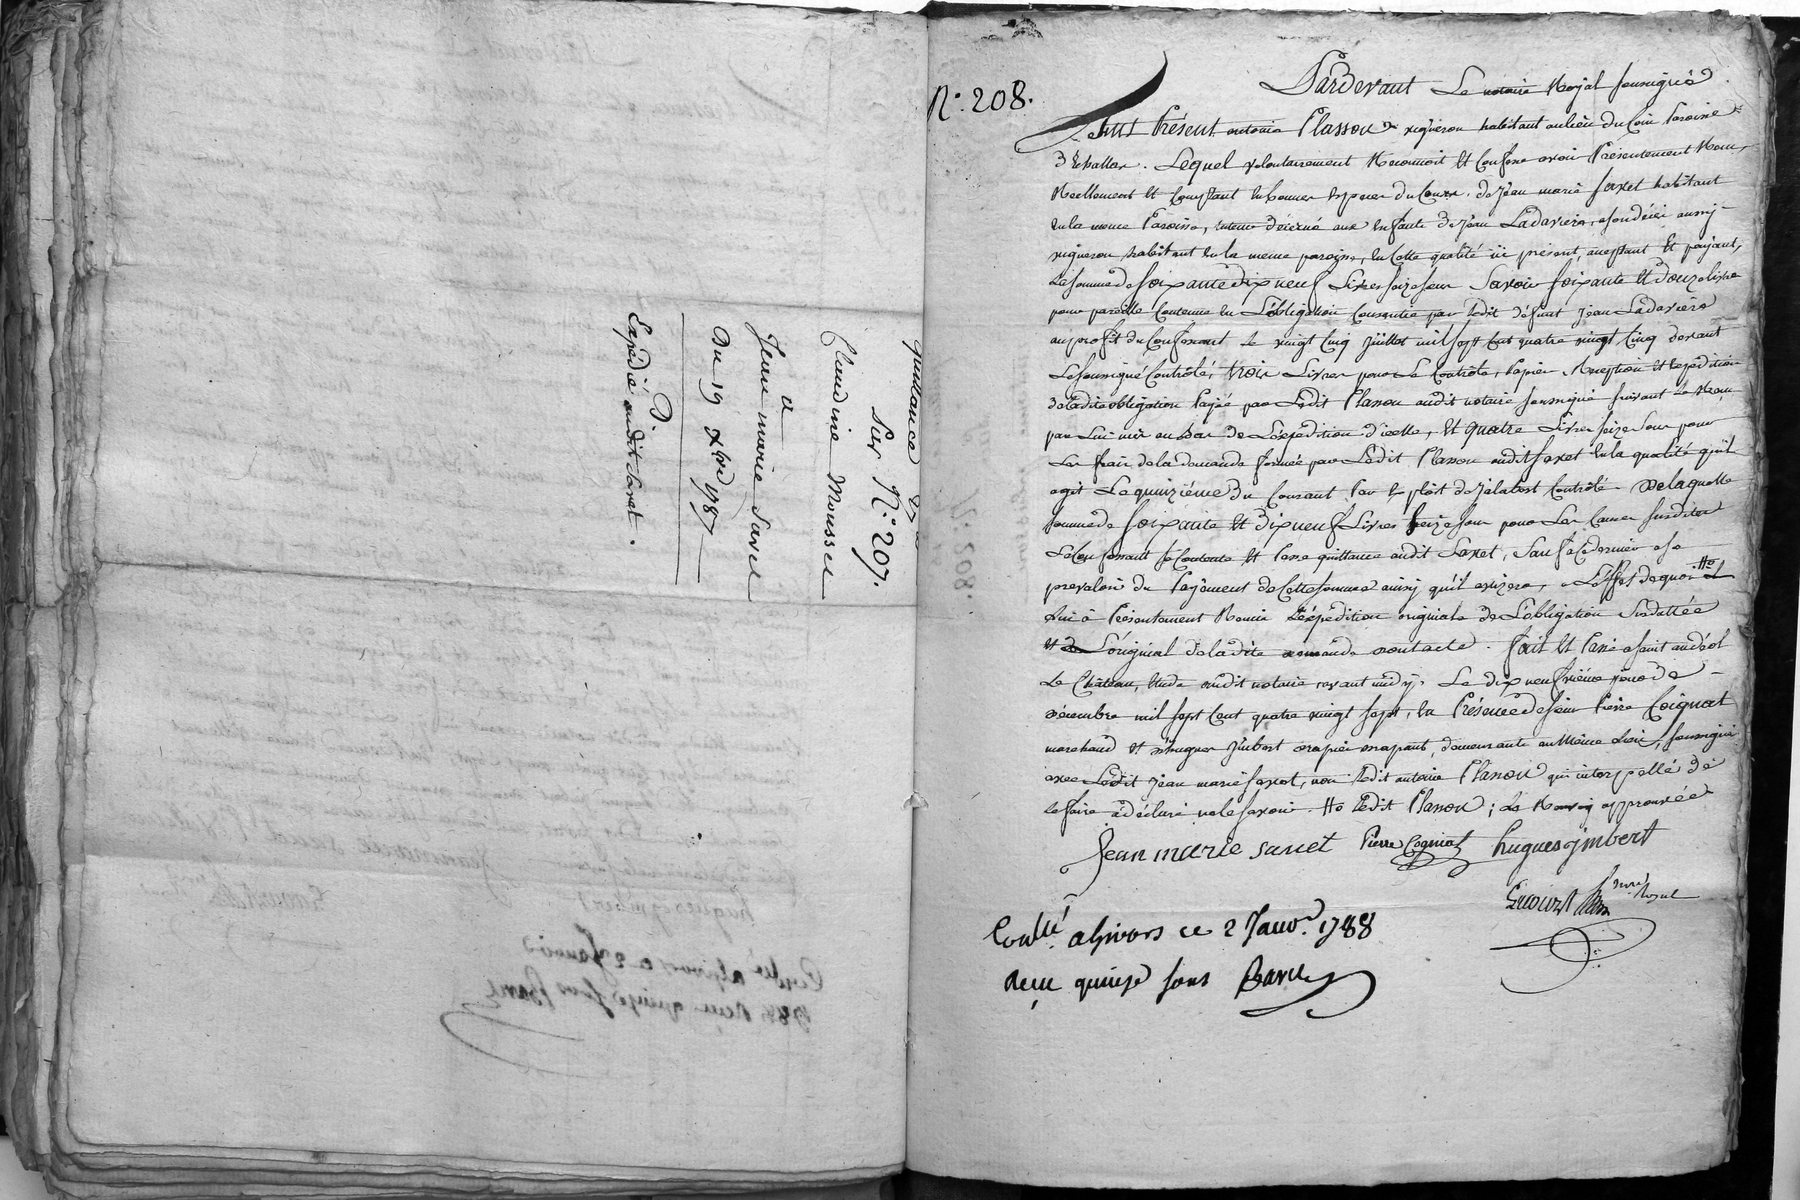 quittance de 27 #
Sur N.° 207.
Claudine Mousset
a
Jean marie Saret
Du 19 Xbre 1787
Expédié audit Saret.
N.° 208.
Pardevant Le notaire Royal soussigné
fut Présent antoine Plasson vigneron habitant au lieu du Coin Paroisse
d'Echallas. Lequel volontairement Reconnoit Et Confesse avoir Présentement Reçu
Réellement Et Comptant En bonnes Especes du Cours. de Jean marie Saret habitant
En la meme Paroisse, tuteur décerné aux Enfants de Jean Ladavière, a son décès aussy
vigneron habitant En la meme paroisse, En Cette qualité ici présent, acceptant Et payant,
La somme de soixante dix neuf Livres seize sous Savoir soixante Et douze livres
pour pareille Contenue En L'obligation Consentie par Ledit défunt Jean Ladavière
au profit du Confessant Le vingt Cinq juillet mil sept Cent quatre vingt Cinq devant
Le soussigné Contrôlé, trois Livres pour Le Contrôle, Papier, Reception Et Expédition
de ladite obligation Payée par Ledit Plasson audit notaire soussigné suivant Le Reçu
par Lui mis au bas de L'expédition d'icelle, Et quatre Livres seize sous pour
Les frais de la demande formée par Ledit Plasson audit Saret En la qualité qu'il
agit Le quinzième du Courant Par Exploit de Contrôlé De laquelle
somme de soixante Et dix neuf Livres seize sous pour Les Causes susdites
Le Confessant se Contente Et Passe quittance audit Saret, Sauf a Ce dernier a se
prevaloir du Payement de Cette somme ainsy qu'il avisera, a L'effet de quoi #o il
Lui a Présentement Remis L'expédition originale de L'obligation Susdattée
Et de L'original de la dite demande dont acte. fait Et Passé a saint andéol
Le Château, Etude dudit notaire avant midy, Le dix neufvième jour de
décembre mil sept Cent quatre vingt sept, En Présence de sieur Pierre Coignat
marchand Et d'hugues Jmbert drapier drapant, demeurants au Même Lieu, soussignés
avec Ledit Jean marie Saret, non Ledit antoine Plasson qui interpellé de
le faire a déclaré ne le savoir. #o Ledit Plasson; Le Renvoy approuvé
Jean marie saret Pierre Cogniat hugues jmbert
nore Royal
Contlé a Givors ce 2 Janv.r 1788
Reçu quinze sous Barel